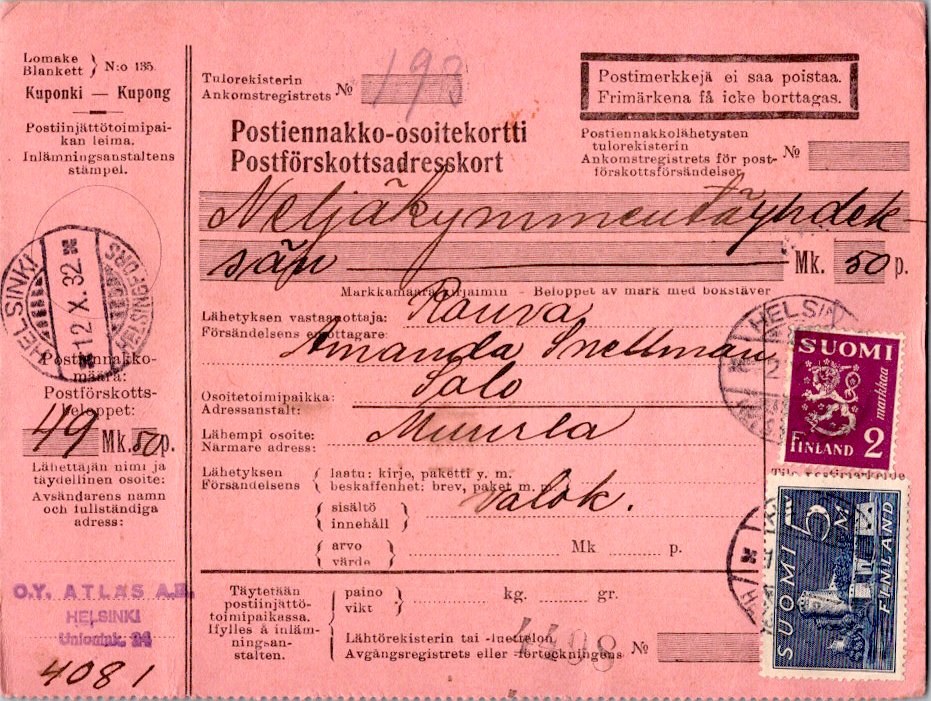 Lomake
Blankett } N:o 135.
Kuponki — Kupong
Postiinjättötoimipai-
kan leima.
Inlämningsanstaltens
stämpel.
HELSINKI
HELSINGFORS
12 X. 32
Postiennakko-
määrä:
Postförskotts-
beloppet:
49 Mk. 50 p.
Lähettäjän nimi ja
täydellinen osoite:
Avsändarens namn
och fullständiga
adress:
O.Y. ATLAS A.B.
HELSINKI
Unionink. 24
4081
Tulorekisterin
Ankomstregistrets №
193
Postimerkkejä ei saa poistaa.
Frimärkena få icke borttagas.
Postiennakko-osoitekortti
Postförskottsadresskort
Postiennakkolähetysten
tulorekisterin
Ankomstregistrets för post-
förskottsförsändelser №
Neljäkymmentäyhdek-
sän — Mk. 50 p.
Markkamäärä kirjaimin – Beloppet av mark med bokstäver
Lähetyksen vastaanottaja:
Försändelsens emottagare:
Rouva
Amanda Snellman
Osoitetoimipaikka:
Adressanstalt:
Salo
Lähempi osoite:
Närmare adress:
Muurla
Lähetyksen
Försändelsens
laatu: kirje, paketti y. m.
beskaffenhet: brev, paket m. m.
Valok.
sisältö
innehåll
arvo
värde
Mk p.
Täytetään
postiinjättö-
toimipaikassa.
Ifylles å inläm-
ningsan-
stalten.
paino
vikt
kg. gr.
Lähtörekisterin tai -luettelon
Avgångsregistrets eller -förteckningens №
4498
HELSINKI
SUOMI
markkaa
FINLAND 2
SUOMI 5 MK
FINLAND